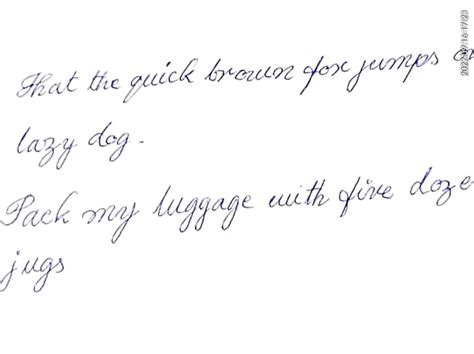 That the quick brown fox jumps o
lazy dog.
Pack my luggage with five doze
jugs